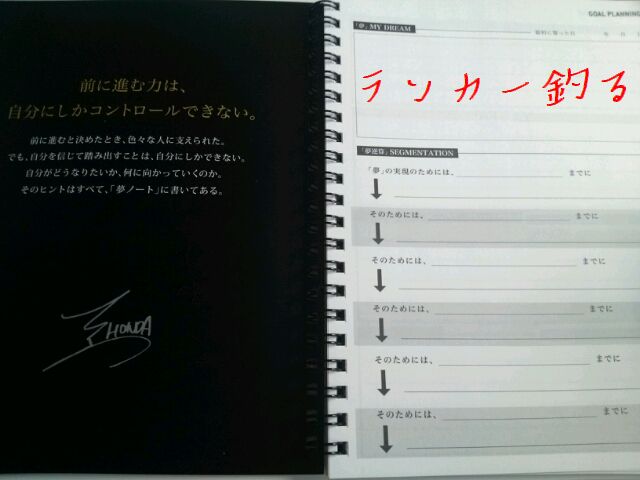 前に進む力は、
自分にしかコントロールできない。
前に進むと決めたとき、色々な人に支えられた。
でも、自分を信じて踏み出すことは、自分にしかできない。
自分がどうなりたいか、何に向かっていくのか。
そのヒントはすべて、「夢ノート」に書いてある。
HONDA
GOAL PLANNING
「夢」 MY DREAM
年 月
ランカー釣る
「夢逆算」 SEGMENTATION
「夢」の実現のためには、 までに
そのためには、 までに
そのためには、 までに
そのためには、 までに
そのためには、 までに
そのためには、 までに